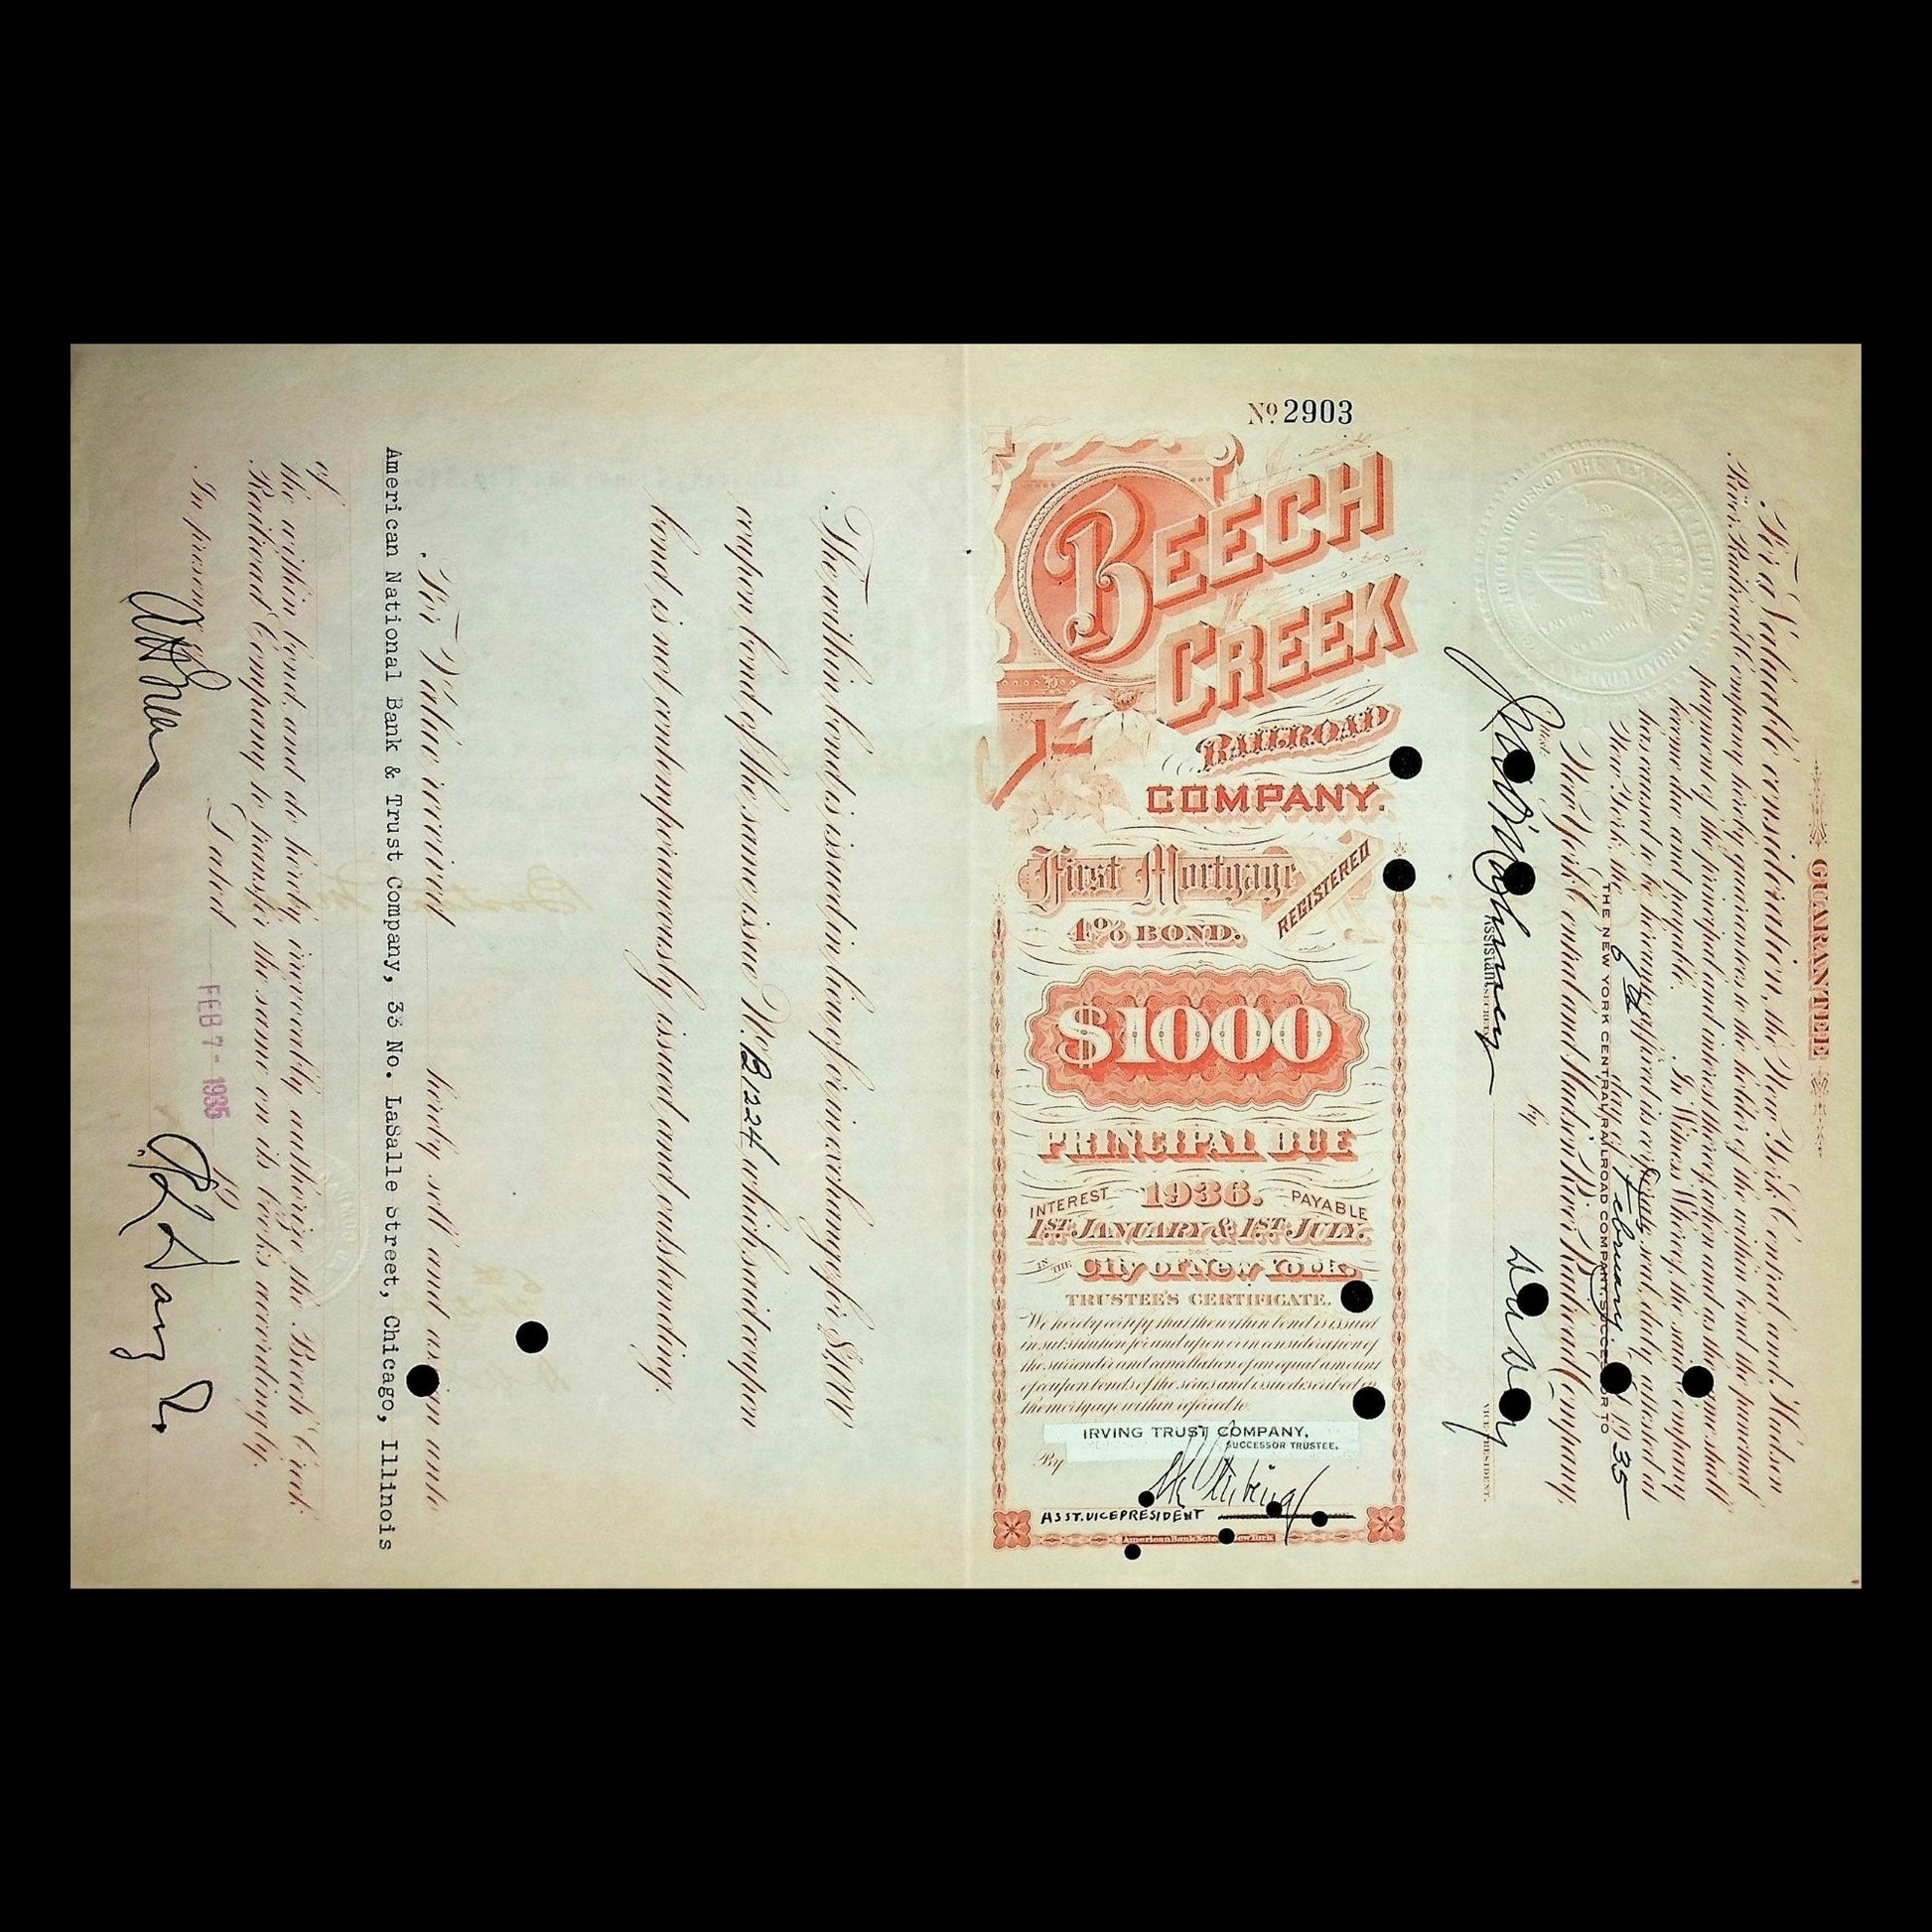 GUARANTEE
For a Valuable consideration, the New York Central and Hudson
River Railroad Company hereby guarantees to the holder of the within bond the punctual
payment of the principal and interest thereof, when and as the same shall
become due and payable.
In Witness Whereof, the said company
has caused to be hereunto affixed its corporate seal, duly attested at
New York, the 6th day of February 1935
THE NEW YORK CENTRAL RAILROAD COMPANY, SUCCESSOR TO
New York Central and Hudson River Railroad Company,
by
Attest:
Assistant SECRETARY
VICE PRESIDENT.
No 2903
BEECH
CREEK
RAILROAD
COMPANY.
First Mortgage
REGISTERED
4% BOND.
$1000
PRINCIPAL DUE
INTEREST 1936. PAYABLE
1ST JANUARY & 1ST JULY.
IN THE City of New York.
TRUSTEE'S CERTIFICATE.
We hereby certify that the within bond is issued
in substitution for and upon or in consideration of
the surrender and cancellation of an equal amount
of coupon bonds of the series and issue described in
the mortgage within referred to.
IRVING TRUST COMPANY,
SUCCESSOR TRUSTEE.
By
ASST. VICE PRESIDENT
American Bank Note New York
The within bond is issued in lieu of or in exchange for $1,000
coupon bond of the same issue No. B1224, which said coupon
bond is not contemporaneously issued and outstanding.
For Value received hereby sell and assign unto
American National Bank & Trust Company, 33 No. LaSalle Street, Chicago, Illinois
of
the within bond, and do hereby irrevocably authorize the Beech Creek
Railroad Company to transfer the same on its books accordingly.
Dated FEB 7 - 1935 19
In presence of